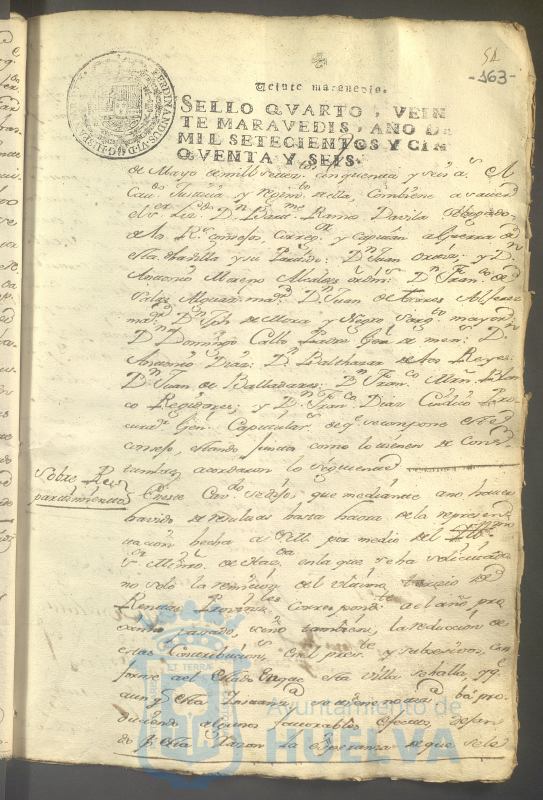 51
-163-
FERDINANDUS VI D G HISPA
Veinte maravedis.
SELLO QVARTO, VEIN
TE MARAVEDIS, AÑO DE
MIL SETECIENTOS Y CIN
QVENTA Y SEIS.
de Mayo de mill setez.tos cinquenta y seis a.s el
Cau.do Justicia y reximto de ella, combiene a sauer
el s.r Liz.do D.n Ramos Davila Abogado
de los R.s consejos, Correg.or y capitan a Guerra de
esta d.ha villa y su Partido: D.n Juan y D.n
Antonio Moreno Alcaldes ordin.s: D.n Fran.co de
Alguazil ma.or D.n Juan de Torres Alferez
ma.or D.n Jph de Mora y Negro
D.n Domingo Calbo
Antonio Diaz: D.n Balthasar de los Reyes:
D.n Juan de Balladares: D.n Fran.co Mrn.
co Rexidores; y D.n Fran.co Diaz Sindico Pro
curad.r Gen.l Capitular de q.e se compone este
consejo, estando juntos como lo tienen de cons
tumbre acordaron lo siguiente
Sobre Re
partimientos
En este Cav.do se dijo que mediante a no hauer
havido de resultas hasta haora de la represen
tacion hecha a S.M. por medio del Ill.mo
s.r Minro. de Haz.da en la que se ha solicitado
no solo la remision del vltimo tercio de
Rentas Provinz.les correspond.te al año pro
ximo passado, sino tambien, la reduccion de
estas Contribucion.s en el pres.te y subcesivos, con
forme a el estado en que esta villa se halla, y q.e
aunq.e esta Instancia
duciendo algunos fauorables efectos, dejan
do p.r esta razon la esperanza de que se le
ET TERRA
Ayuntamiento de
HUELVA